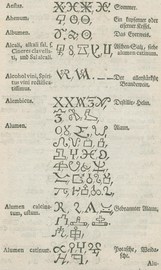 Aestas. Sommer.
Ahenum. Ein kupferner oder
eiserner Kessel.
Albumen. Das Eyerweis.
Alcali, alkali sal. f.
Cineres clavella-
ti, und sal alcali.
Alcohol vini, spiri-
tus vini rectifica-
tissimus.
Der allerstärkste
Brandewein.
Alembicus. Destillir-Helm.
Alumen. Alaun.
Alumen calcina-
tum, ustum.
Gebrannter Alaun.
Alumen catinum.
Alu-